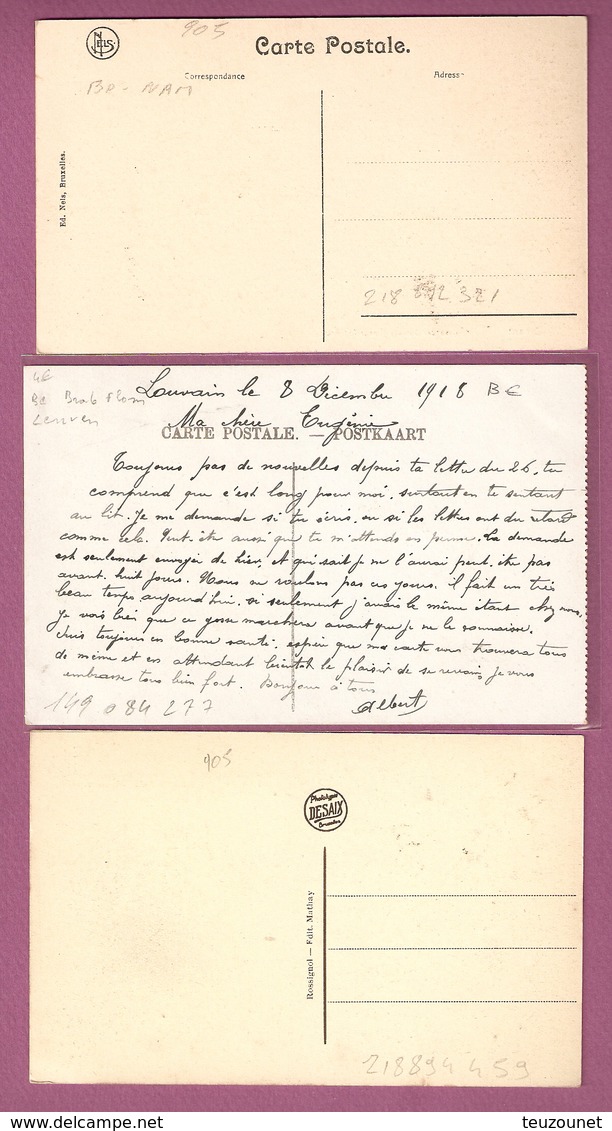 NELS
905
Carte Postale.
Correspondance
Adresse
BR - NAM
Ed. Nels, Bruxelles.
218 892 321
4€
Be Brab Flam
Leuven
Louvain le 8 Décembre 1918 B€
Ma chère Eugénie
CARTE POSTALE. — POSTKAART
Toujours pas de nouvelles depuis ta lettre du 26, tu
comprend que c'est long pour moi, surtout en te sachant
au lit. Je me demande si tu écris, ou si les lettres ont du retard
comme cela. Peut-être aussi que tu m'attends en perme. La demande
est seulement envoyée de hier, et qui sait je ne l'aurai peut-être pas
avant huit jours. Nous ne roulons pas ces jours. Il fait un très
beau temps aujourd'hui, si seulement j'avais le même étant chez nous,
Je vois bien que ce gosse marchera avant que je ne le connaisse.
Suis toujours en bonne santé, espère que ma carte vous trouvera tous
de même et en attendant bientôt le plaisir de se revoir, je vous
embrasse tous bien fort. Bonjour à tous
Albert
149 084 277
905
Phototypie
DESAIX
Bruxelles
Rossignol — Edit. Mathay
218894 459
delcampe.net
teuzounet